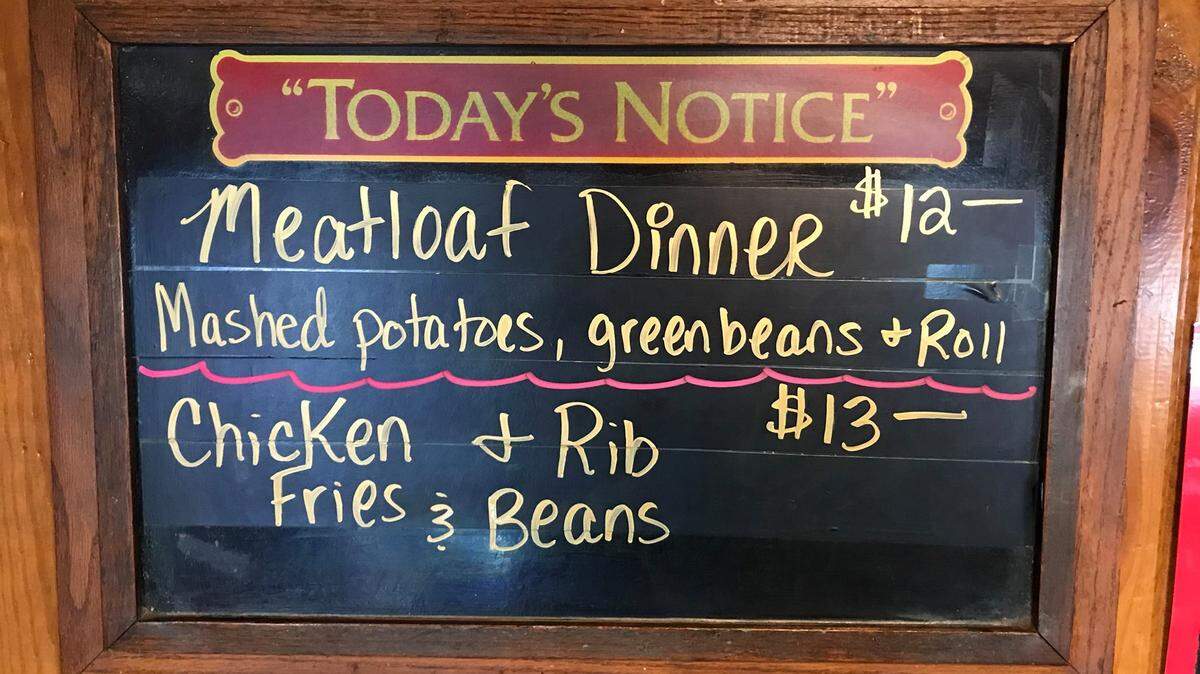 "TODAY'S NOTICE"
Meatloaf Dinner $12—
Mashed potatoes, green beans & Roll
Chicken & Rib $13—
Fries & Beans